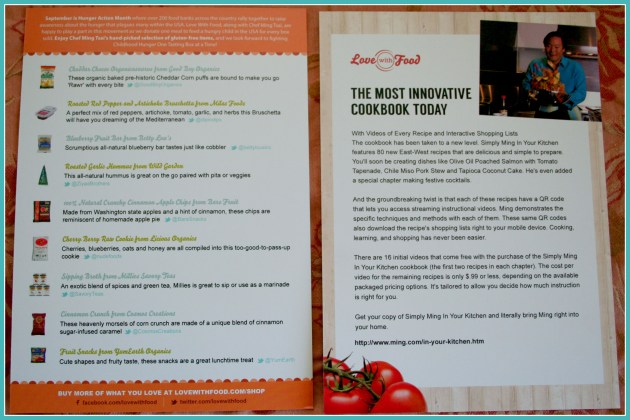 September is Hunger Action Month where over 200 food banks across the country rally together to raise
awareness about the hunger that plagues many within the USA. Love With Food, along with Chef Ming Tsai, are
happy to play a part in this movement as we donate one meal to feeding a hungry child in the USA for every box
with. Enjoy Chef Ming Tsai's hand-picked selection of gluten-free items, and we look forward to fighting
Childhood Hunger One Tasting Box at a Time!
Cheddar Cheese Organicasaurus from Good Boy Organics
These organic baked pre-historic Cheddar Corn puffs are bound to make you go
'Rawr' with every bite
Roasted Red Pepper and Artichoke Bruschetta from Mina Foods
A perfect mix of red peppers, artichoke, tomato, garlic, and herbs this Bruschetta
will have you dreaming of the Mediterranean
Blueberry Fruit Bar from Betty Lou's
Scrumptious all-natural blueberry bar tastes just like cobbler
Roasted Garlic Hummus from Wild Garden
This all-natural hummus is great on the go paired with pita or veggies
100% Natural Crunchy Cinnamon Apple Chips from Bare Fruit
Made from Washington state apples and a hint of cinnamon, these chips are
reminiscent of homemade apple pie
Cherry Berry Raw Cookie from Licious Organics
Cherries, blueberries, oats and honey are all compiled into this too-good-to-pass-up
cookie
Sipping Broth from Millies Savory Teas
An exotic blend of spices and green tea, Millies is great to sip or use as a marinade
Cinnamon Crunch from Cosmos Creations
These heavenly morsels of corn crunch are made of a unique blend of cinnamon
sugar-infused caramel @CosmosCreations
Fruit Snacks from YumEarth Organics
Cute shapes and fruity taste, these snacks are a great lunchtime treat @YumEarth
BUY MORE OF WHAT YOU LOVE AT LOVEWITHFOOD.COM/SHOP
facebook.com/lovewithfood twitter.com/lovewithfood
Love with Food
THE MOST INNOVATIVE
COOKBOOK TODAY
With Videos of Every Recipe and Interactive Shopping Lists
The cookbook has been taken to a new level. Simply Ming in Your Kitchen
features 80 new East-West recipes that are delicious and simple to prepare.
You'll soon be creating dishes like Olive Oil Poached Salmon with Tomato
Tapenade, Chile Miso Pork Stew and Tapioca Coconut Cake. He's even added
a special chapter making festive cocktails.
And the groundbreaking twist is that each of these recipes have a QR code
that lets you access streaming instructional videos. Ming demonstrates the
specific techniques and methods with each of them. These same QR codes
also download the recipe's shopping lists right to your mobile device. Cooking,
learning, and shopping has never been easier.
There are 16 initial videos that come free with the purchase of the Simply Ming
In Your Kitchen cookbook (the first two recipes in each chapter). The cost per
video for the remaining recipes is only $.99 or less, depending on the available
packaged pricing options. It's tailored to allow you decide how much instruction
is right for you.
Get your copy of Simply Ming In Your Kitchen and literally bring Ming right into
your home.
http://www.ming.com/in-your-kitchen.htm